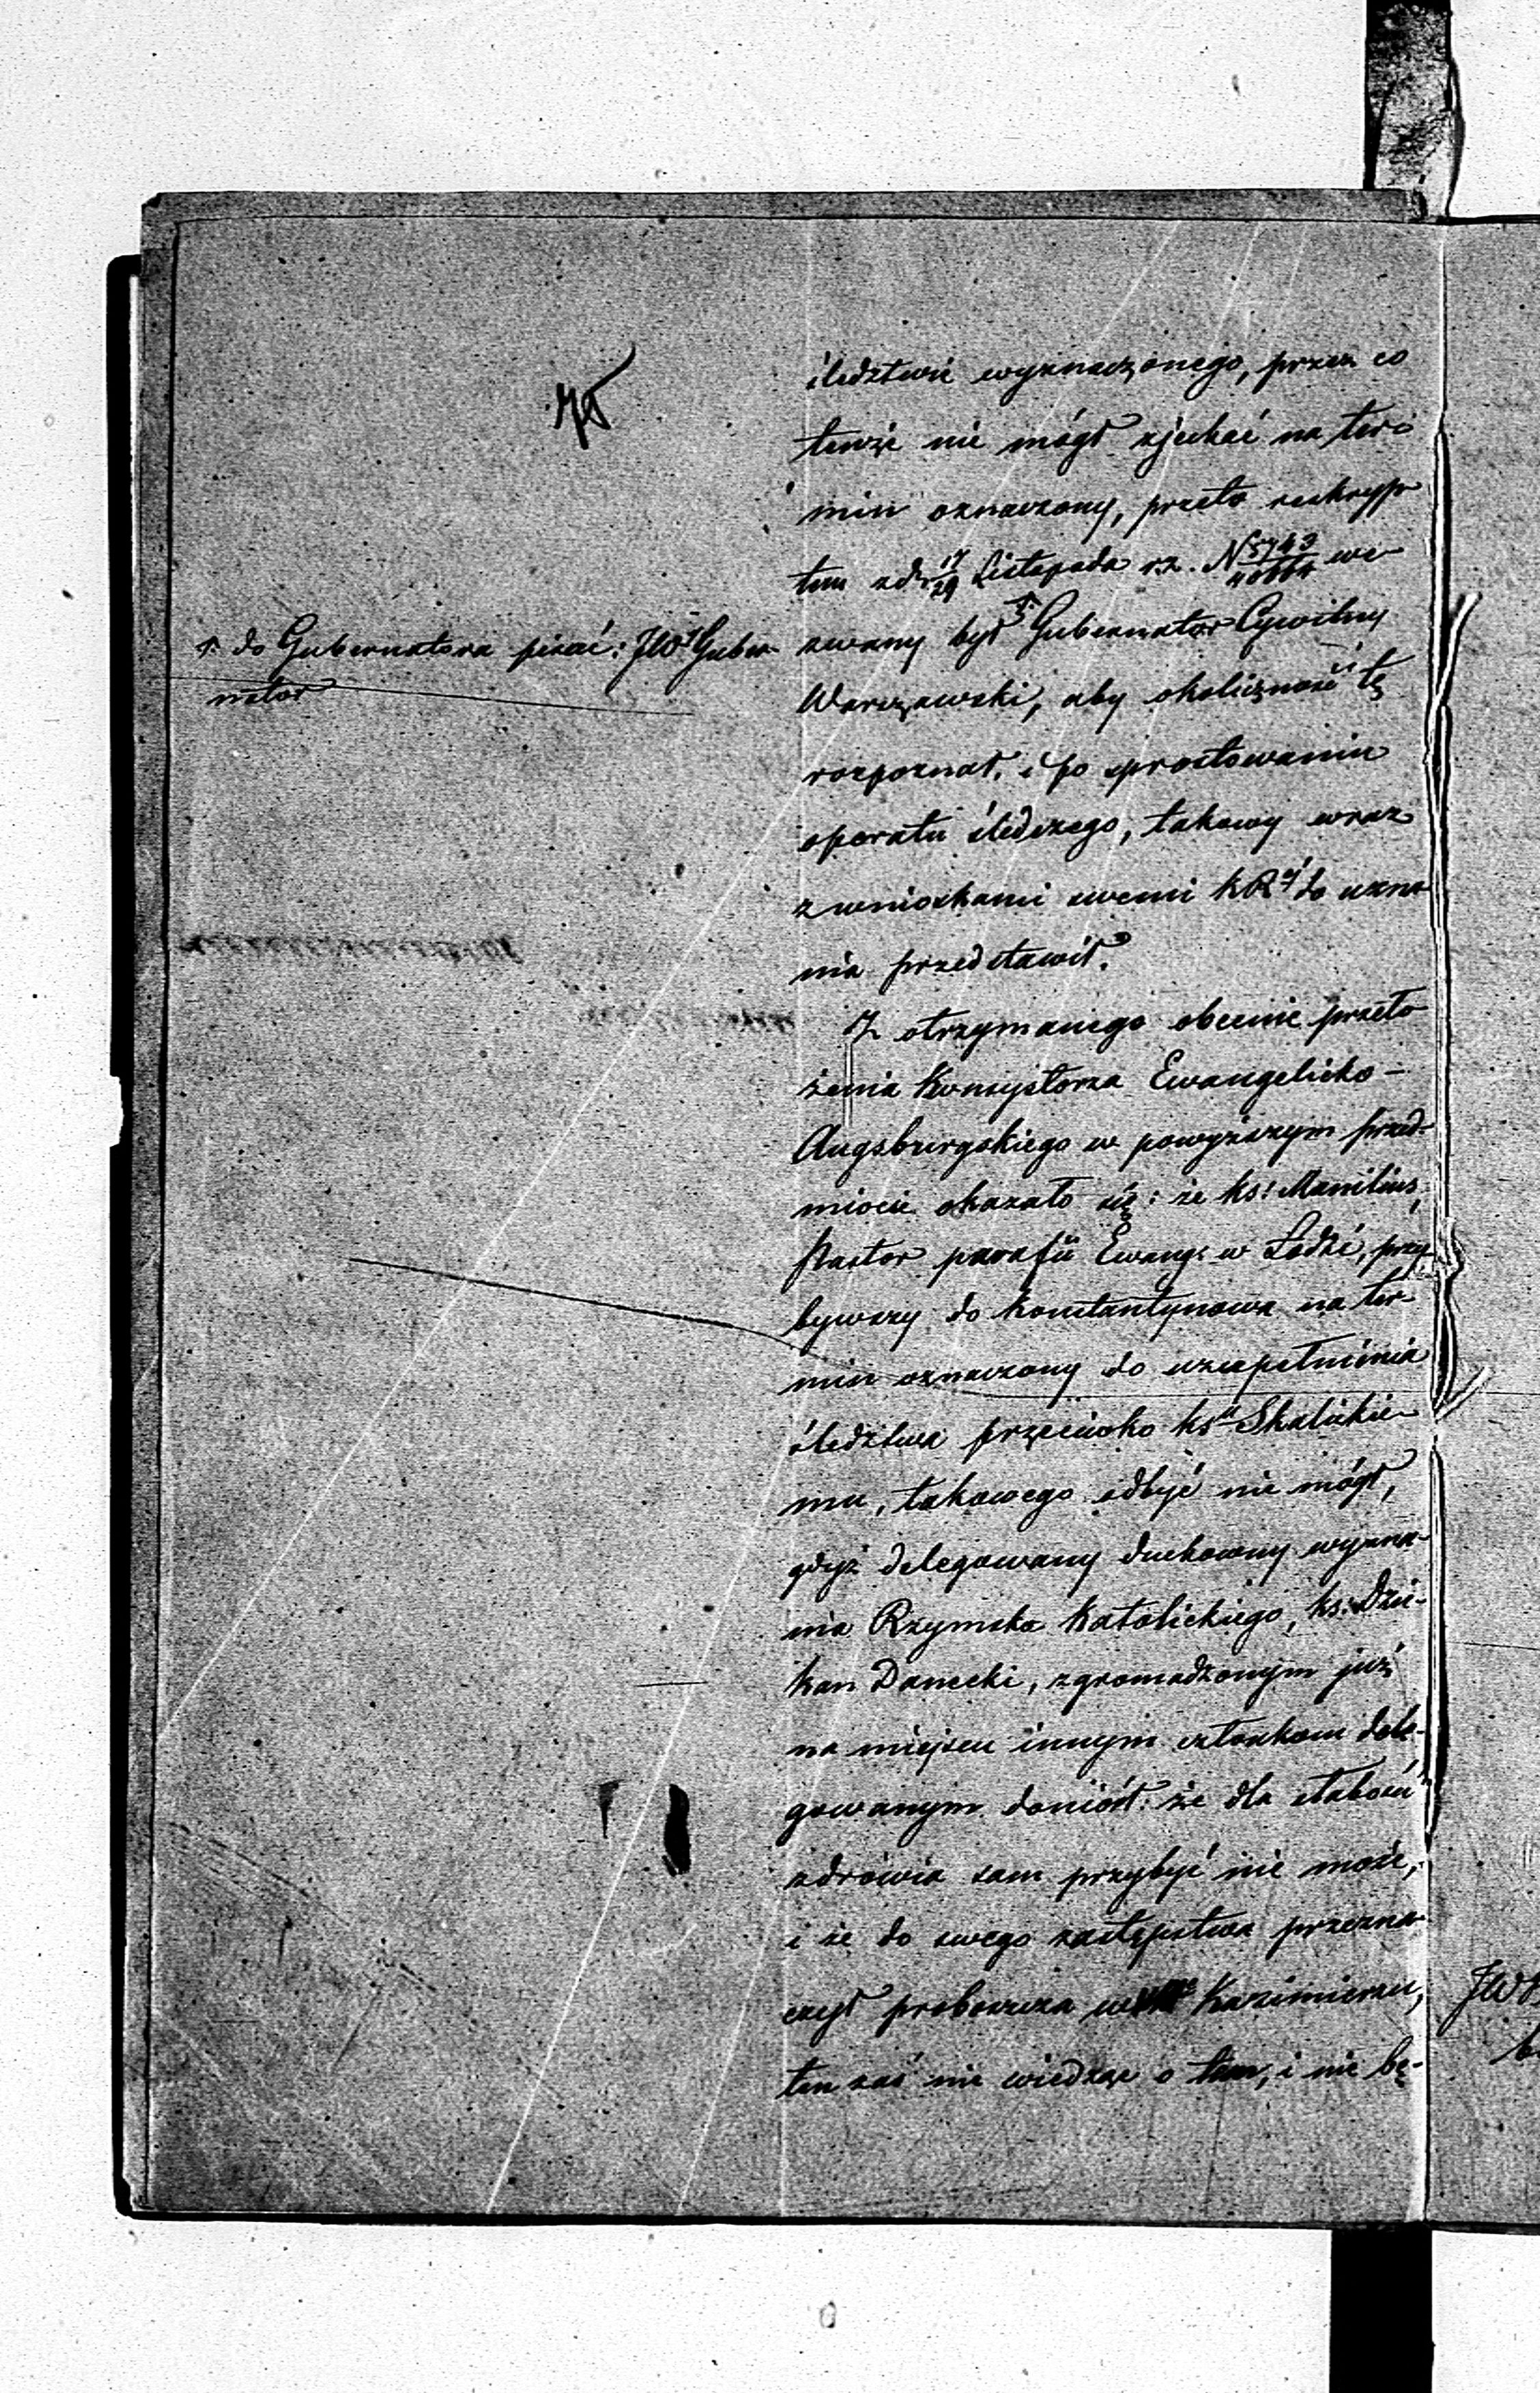 śledztwie wyznaczonego, przez co
tenże nie mógł zjechać na ter-
min oznaczony, przeto reskryp
tem z d. 17/29 Listopada r.z. N 5743/40664 we-
zwany był Gubernator Cywilny
Warszawski, aby okoliczność tę
rozpoznał, i po sprostowaniu
operatu śledczego, takowy wraz
z wnioskami swemi KRy do uzna
nia przedstawił.
do Gubernatora pisać: JWy Guber-
nator
Z otrzymanego obecnie przeło
żenia Konsystorza Ewangelicko-
Augsburgskiego w powyższym przed-
miocie okazało się: że ks: Manitius,
Pastor parafii Ewang: w Łodzi, przy
bywszy do Konstantynowa na ter-
min oznaczony do uzupełnienia
śledztwa przeciwko ksu Skalickie-
mu, takowego odbyć nie mógł,
gdyż delegowany duchowny wyzna-
nia Rzymsko Katolickiego, ks: Dzie-
kan Danecki, zgromadzonym już
na miejscu innym członkom dele-
gowanym doniósł: że dla słabości
zdrowia sam przybyć nie może,
i że do swego zastępstwa przezna-
czył proboszcza w Kazimierzu,
ten zaś nie wiedząc o tem, i nie bę-
JW